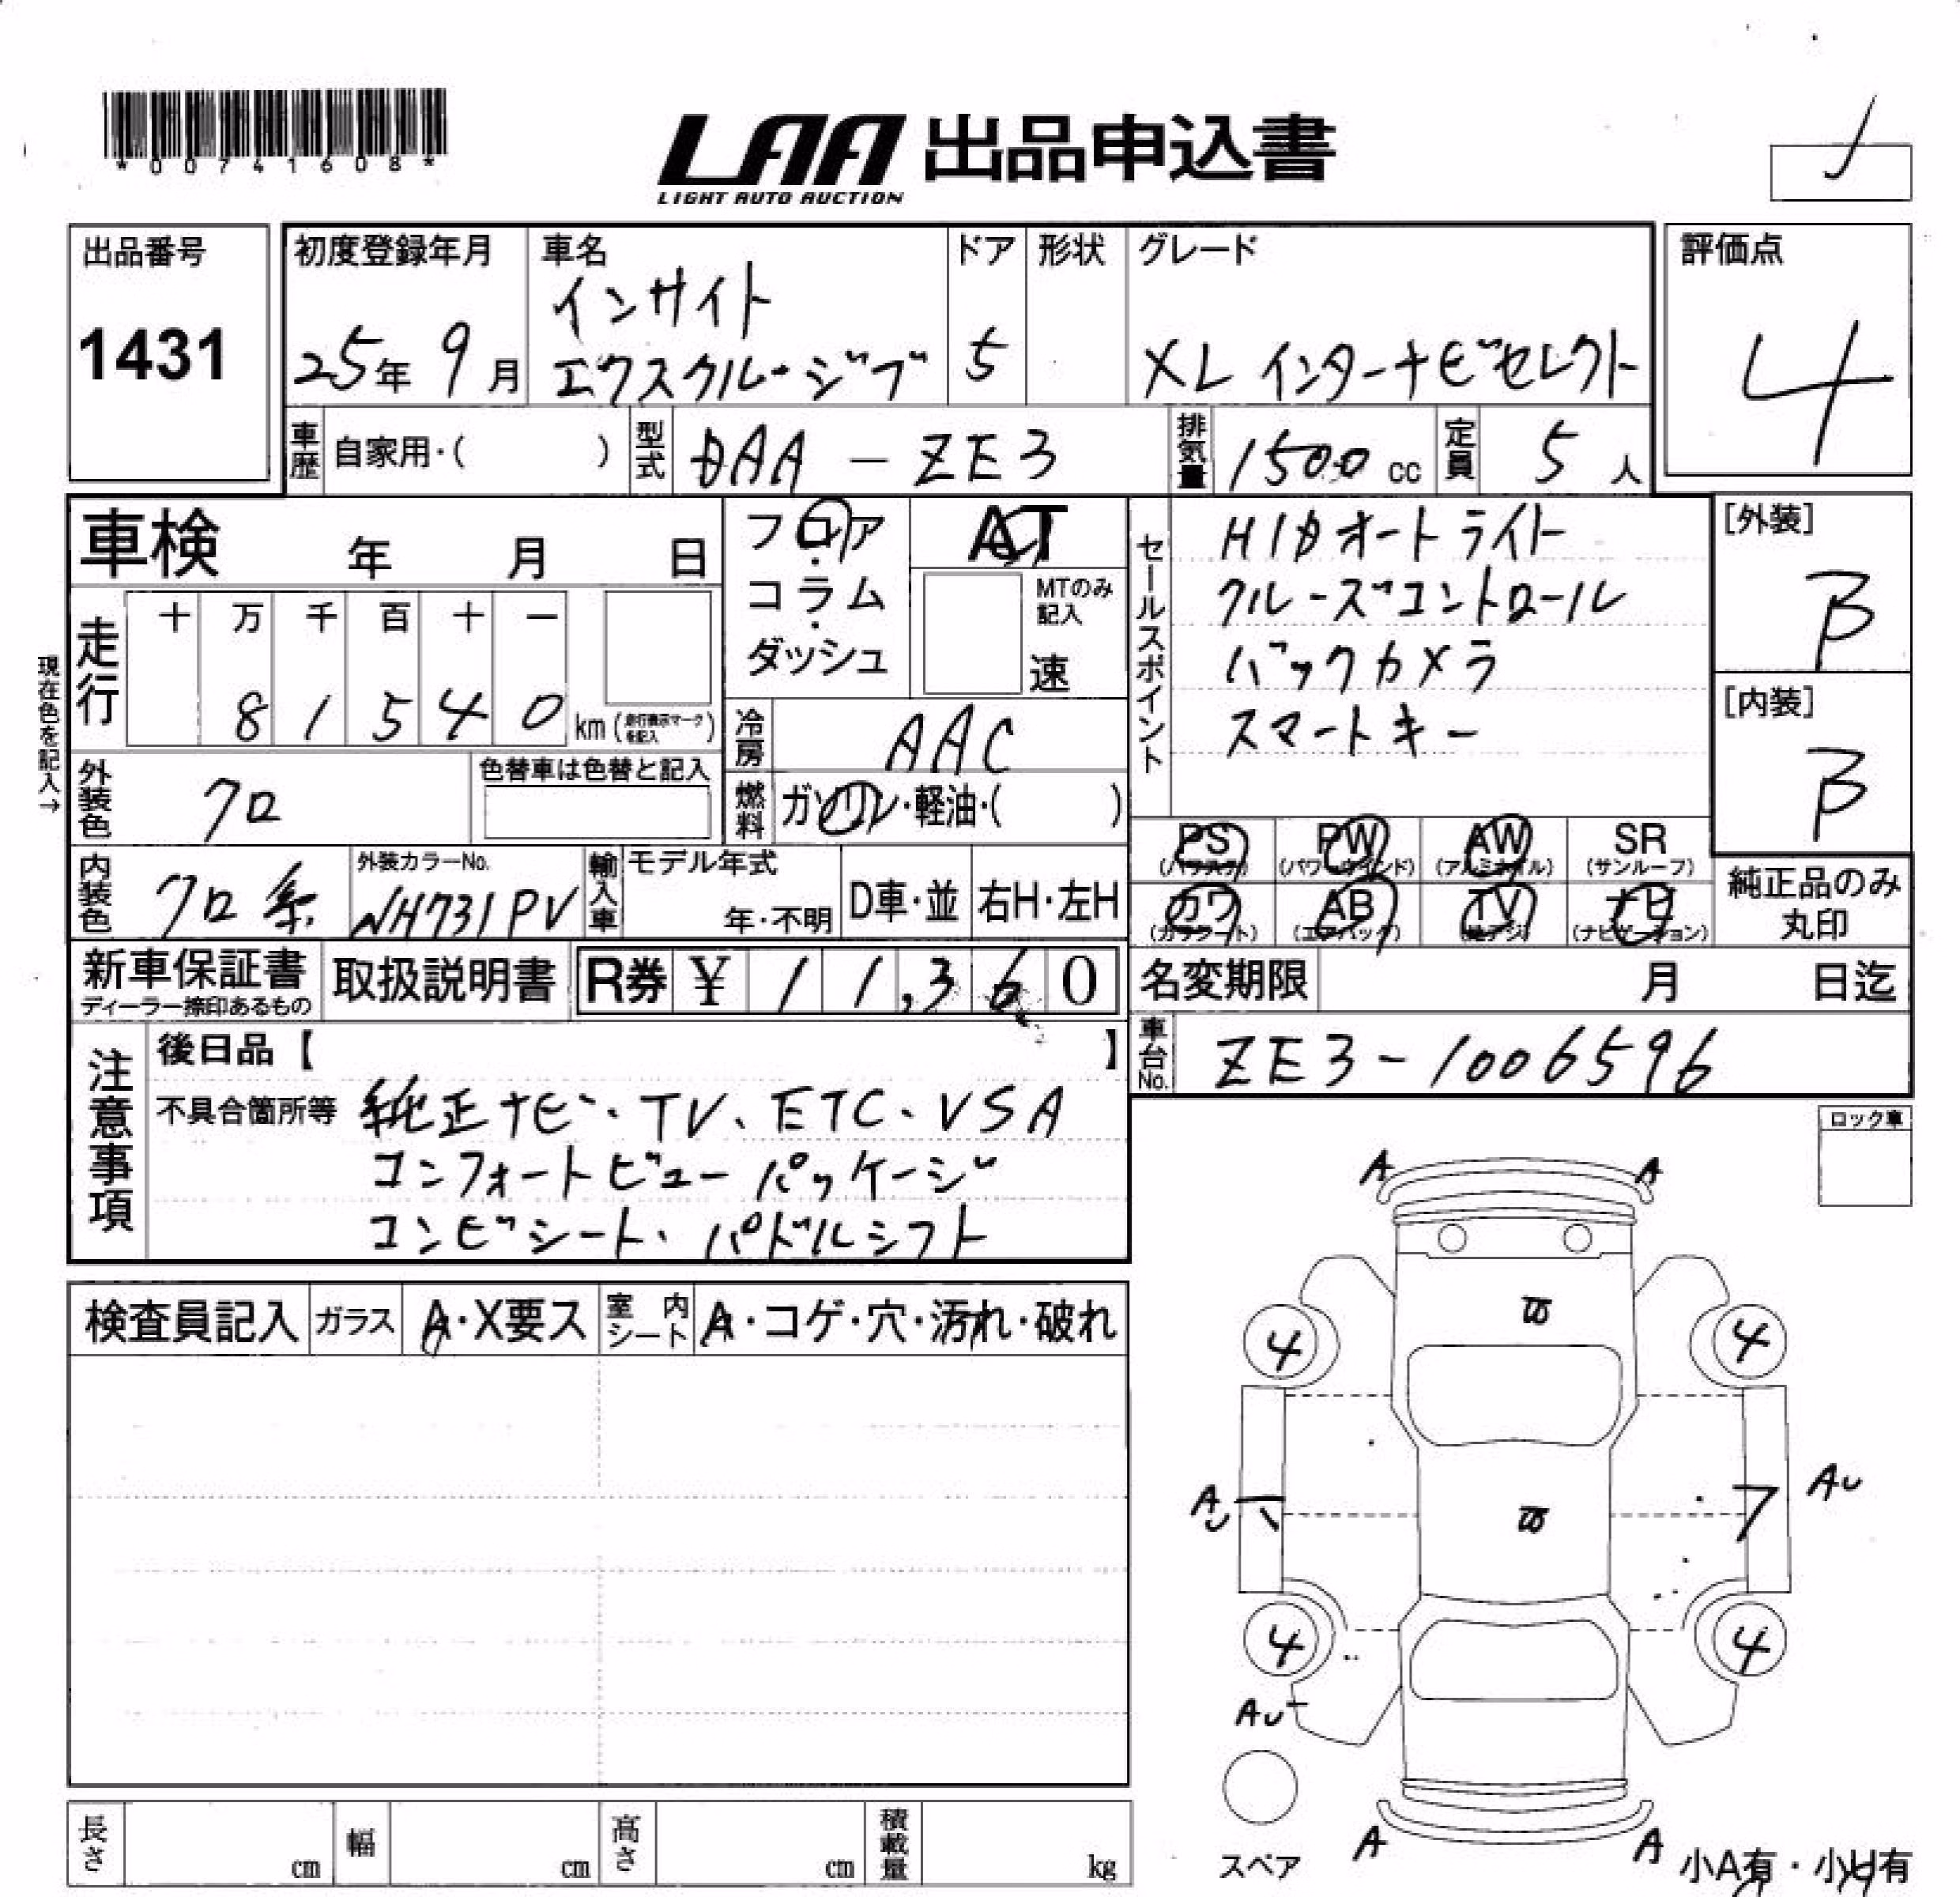 *00741608*
LAA 出品申込書
LIGHT AUTO AUCTION
出品番号
1431
初度登録年月
25年 9月
車名
インサイト
エクスクルーシブ
ドア
5
形状
グレード
XL インターナビセレクト
評価点
4
車歴 自家用・( )
型式 DAA-ZE3
排気量 1500 cc
定員 5 人
車検 年 月 日
フロア・コラム・ダッシュ
AT
MTのみ記入
速
セールスポイント
HIDオートライト
クルーズコントロール
バックカメラ
スマートキー
[外装]
B
[内装]
B
現在色を記入→
走行
十 万 千 百 十 一
8 1 5 4 0 km (走行表示マークを記入)
冷房 AAC
燃料 ガソリン・軽油・( )
外装色 クロ
色替車は色替と記入
内装色 クロ系
外装カラーNo.
NH731PV
輸入車
モデル年式
年・不明
D車・並
右H・左H
PS (パワステ)
PW (パワーウインド)
AW (アルミホイル)
SR (サンルーフ)
カワ (カワシート)
AB (エアバック)
TV (地デジ)
ナビ (ナビゲーション)
純正品のみ丸印
新車保証書
ディーラー捺印あるもの
取扱説明書
R券 ¥ 11,360
名変期限 月 日迄
車台No. ZE3-1006596
注意事項
後日品【 】
不具合箇所等 純正ナビ・TV、ETC、VSA
コンフォートビューパッケージ
コンビシート、パドルシフト
ロック車
検査員記入
ガラス A・X要ス
室内シート A・コゲ・穴・汚れ・破れ
A A
4 4
A
AU
4 4
AU
A A
スペア
小A有・小U有
長さ cm
幅 cm
高さ cm
積載量 kg